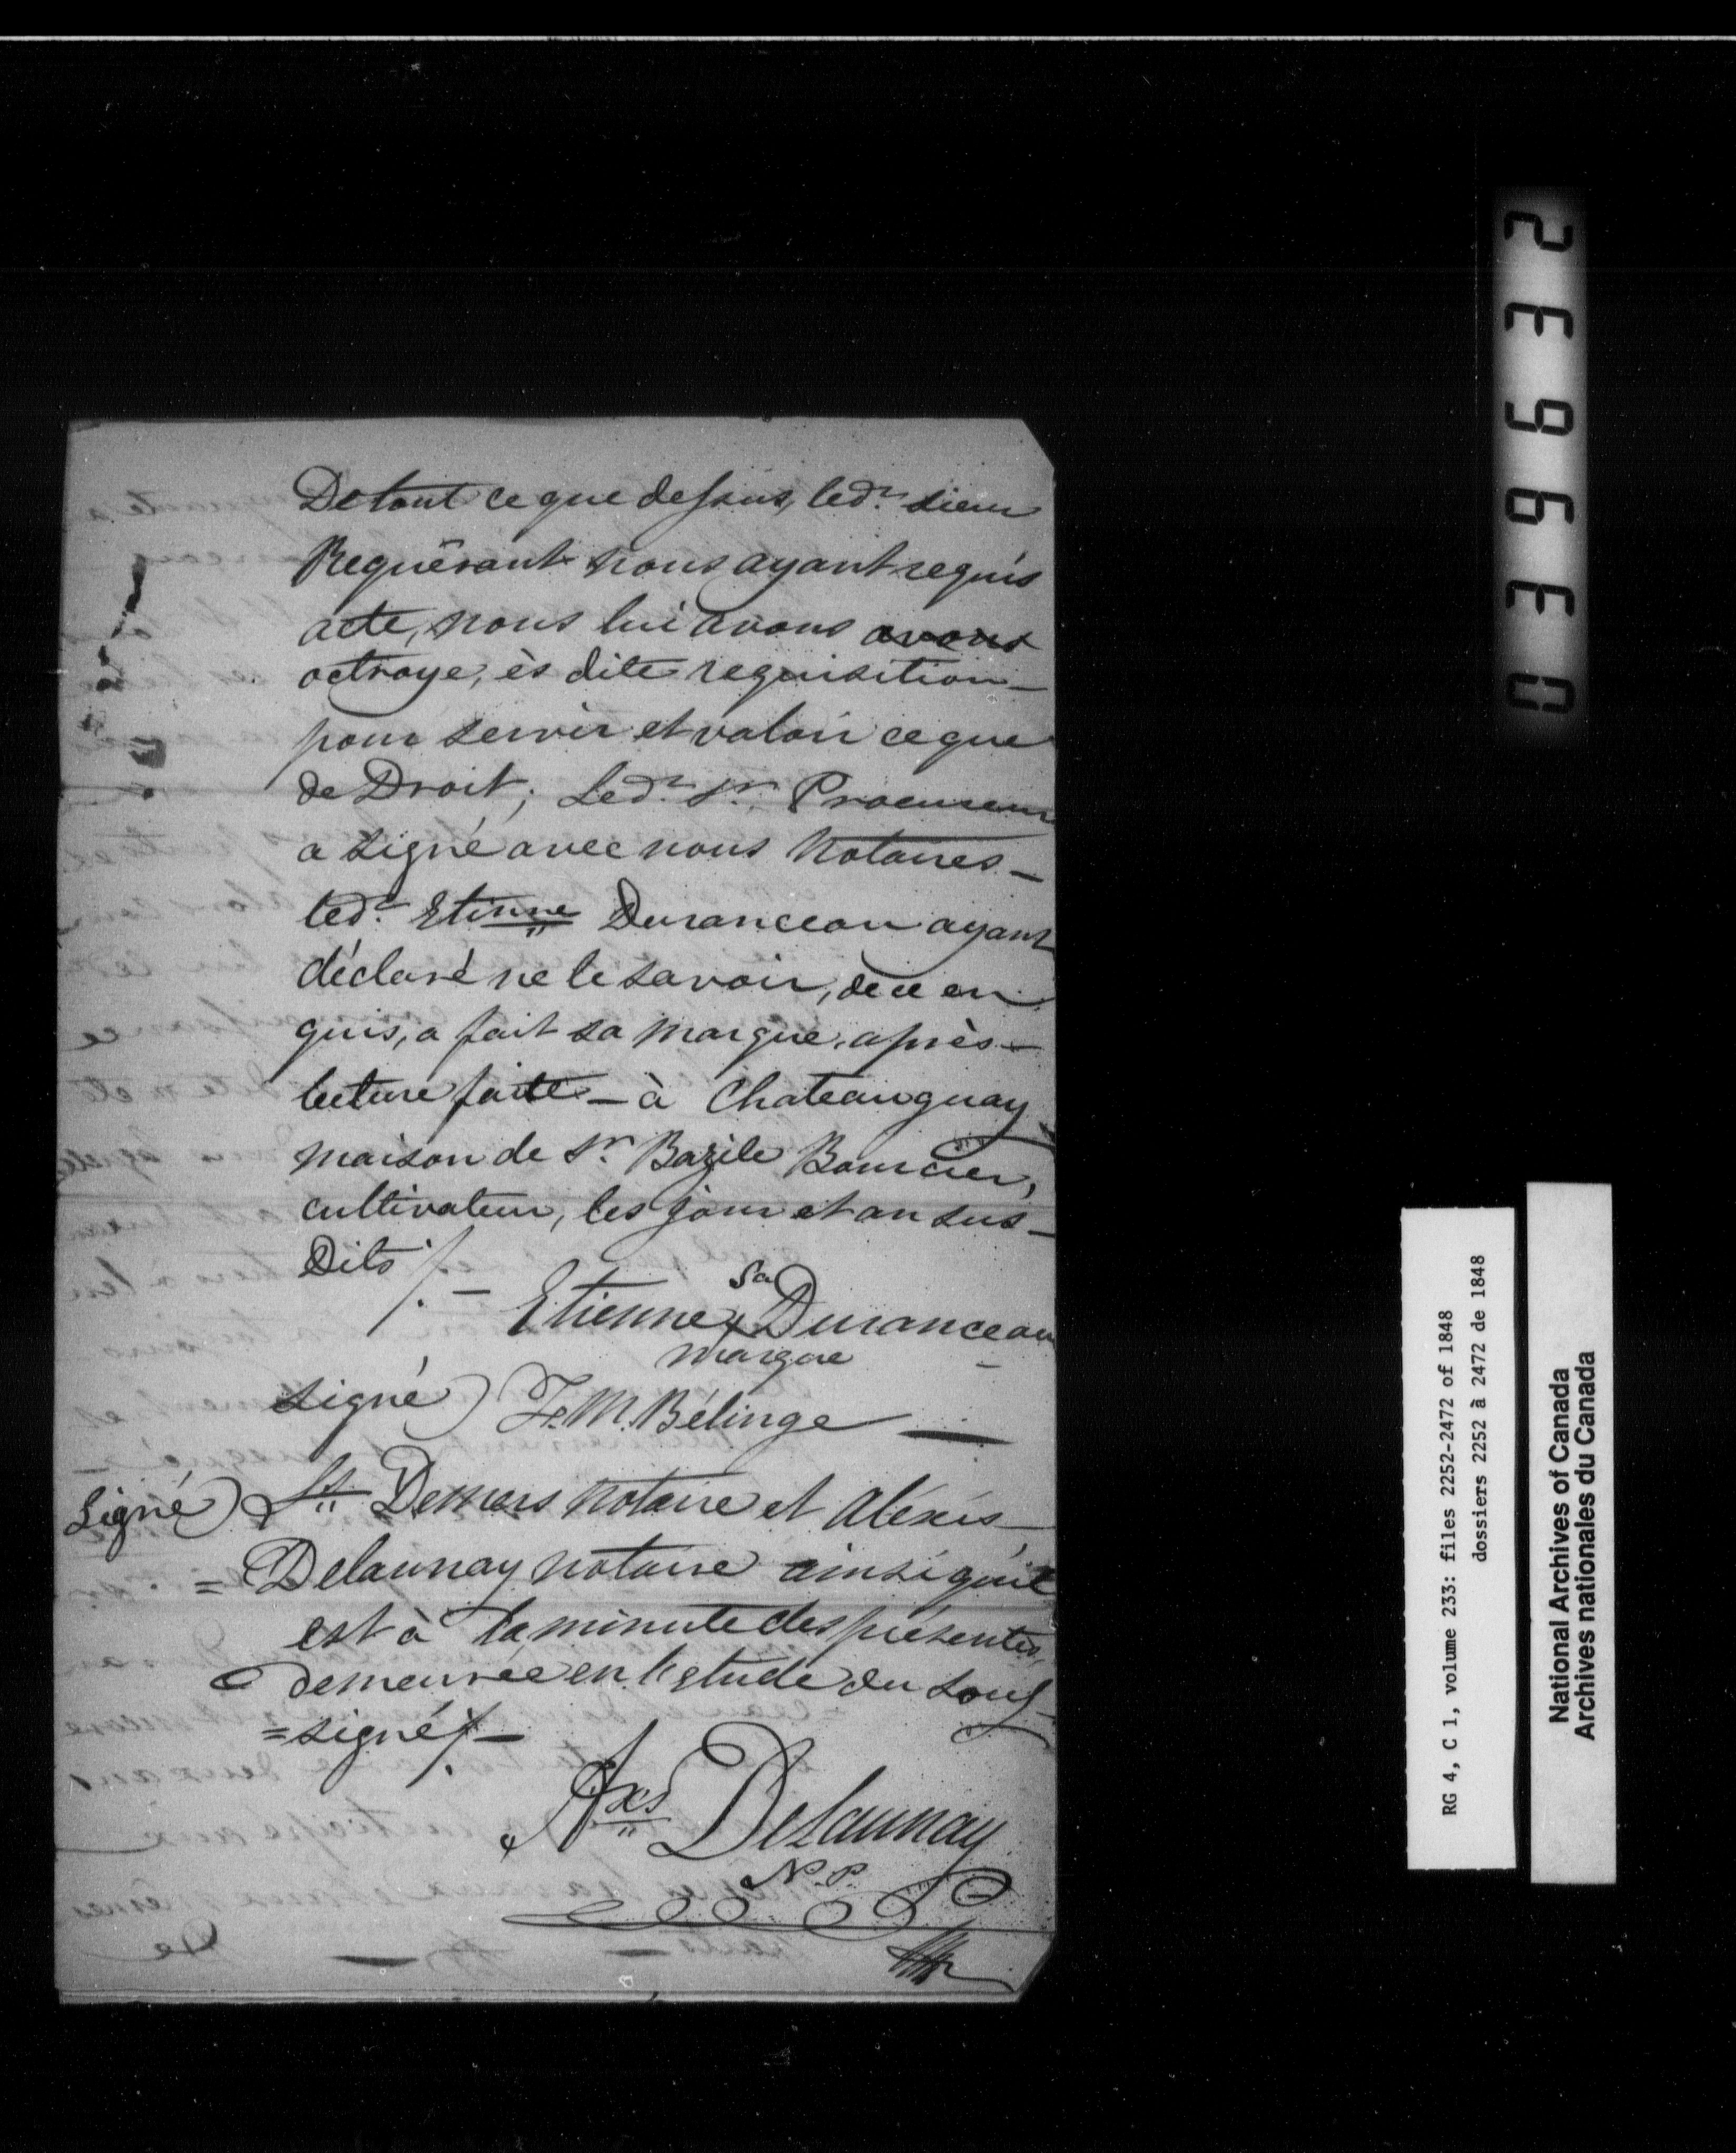 De tout ce que dessus, led.t sieur
Requérant nous ayant requis
acte, nous lui avons avons
octroye, ès dite requisition_
pour servir et valoir ce que
de Droit; Led.t Sr. Procureur
a signé avec nous Notaires_
led.t Etienne Duranceau ayant
déclaré ne le savoir, de ce en
quis, a fait sa marque, après_
lecture faite_ à Chateauguay
maison de Sr. Bazile Bourcier,
cultivateur, les jour et an sus_
Dits ./_
Sa
Etienne x Duranceau
marque
signé) F. M. Bélinge _
Signé) Demers notaire et Aléxis_
= Delaunay notaire ainsi qu'il
est à la minute des présentes,
demeurée en l'etude du sous_
=signé ./_
Axs Delaunay
N.P.
De
039632
RG 4, C 1, volume 233: files 2252-2472 of 1848
dossiers 2252 à 2472 de 1848
National Archives of Canada
Archives nationales du Canada